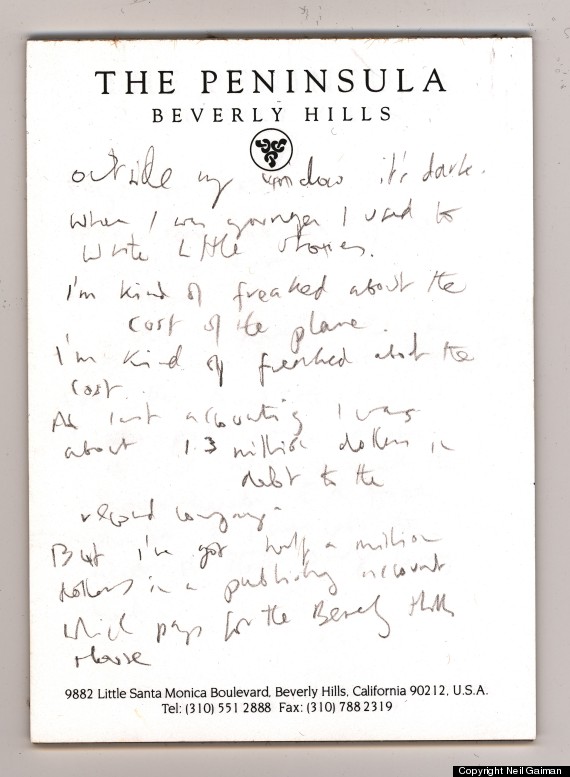 THE PENINSULA
BEVERLY HILLS
outside my window it's dark.
When I was younger I used to
write little stories.
I'm kind of freaked about the
cost of the plane.
I'm kind of freaked about the
cost.
At last accounting I was
about 1.3 million dollars in
debt to the
record company.
But I've got half a million
dollars in a publishing account
which pays for the Beverly Hills
House
9882 Little Santa Monica Boulevard, Beverly Hills, California 90212, U.S.A.
Tel: (310) 551 2888 Fax: (310) 788 2319
Copyright Neil Gaiman